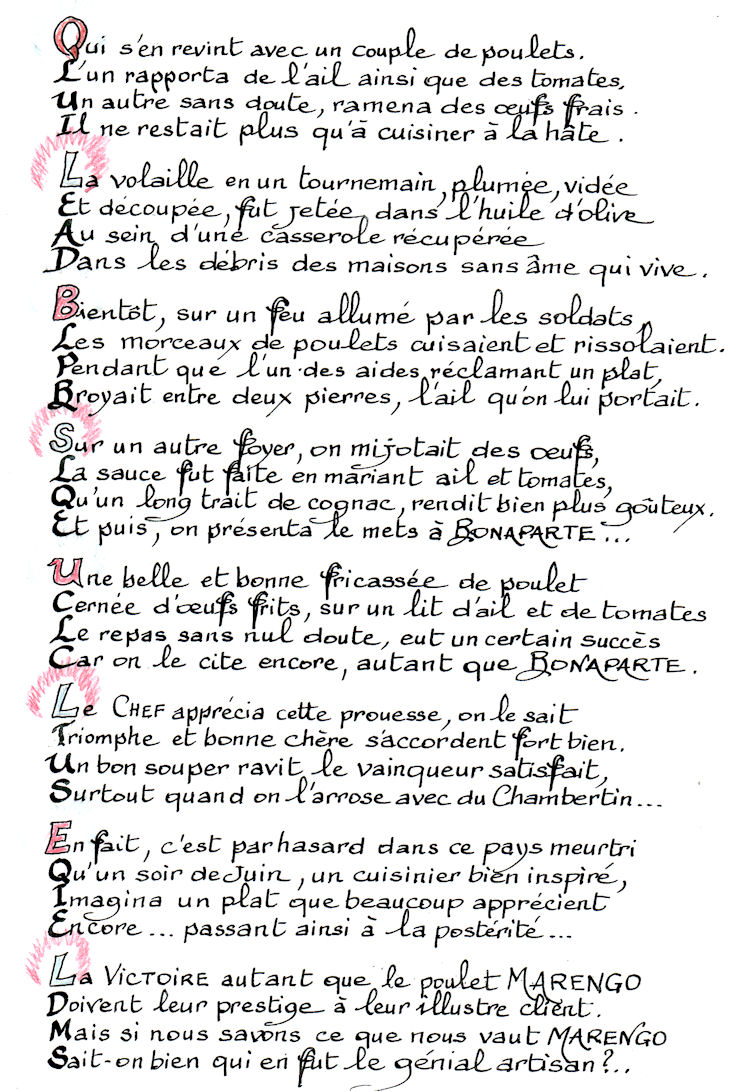 Qui s'en revint avec un couple de poulets.
L'un rapporta de l'ail ainsi que des tomates,
Un autre sans doute, ramena des œufs frais.
Il ne restait plus qu'à cuisiner à la hâte.
La volaille en un tournemain, plumée, vidée
Et découpée, fut jetée, dans l'huile d'olive
Au sein d'une casserole récupérée
Dans les débris des maisons sans âme qui vive.
Bientôt, sur un feu allumé par les soldats,
Les morceaux de poulets cuisaient et rissolaient.
Pendant que l'un des aides, réclamant un plat,
Broyait entre deux pierres, l'ail qu'on lui portait.
Sur un autre foyer, on mijotait des œufs,
La sauce fut faite en mariant ail et tomates,
Qu'un long trait de cognac, rendit bien plus goûteux.
Et puis, on présenta le mets à BONAPARTE...
Une belle et bonne fricassée de poulet
Cernée d'œufs frits, sur un lit d'ail et de tomates
Le repas sans nul doute, eut un certain succès
Car on le cite encore, autant que BONAPARTE.
Le CHEF apprécia cette prouesse, on le sait
Triomphe et bonne chère s'accordent fort bien.
Un bon souper ravit le vainqueur satisfait,
Surtout quand on l'arrose avec du Chambertin...
En fait, c'est par hasard dans ce pays meurtri
Qu'un soir de Juin, un cuisinier bien inspiré,
Imagina un plat que beaucoup apprécient
Encore... passant ainsi à la postérité...
La VICTOIRE autant que le poulet MARENGO
Doivent leur prestige à leur illustre client.
Mais si nous savons ce que nous vaut MARENGO
Sait-on bien qui en fut le génial artisan?..